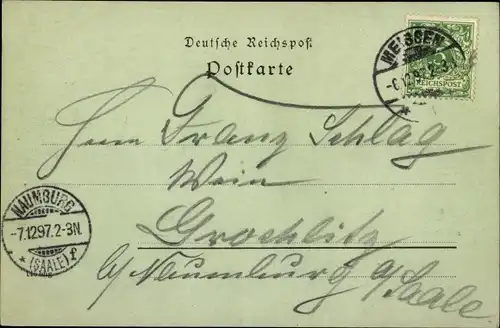 Deutsche Reichspost
Postkarte
MEISSEN
-6.12.97.2-3N.
REICHSPOST
Herrn Franz Schlag
Wein
Grochlitz
b/ Naumburg a/Saale
NAUMBURG
-7.12.97.2-3N.
* (SAALE) f